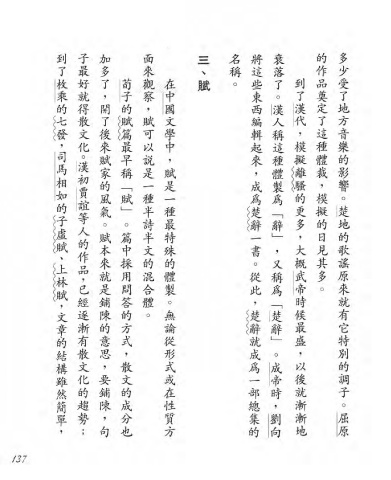 多少受了地方音樂的影響。楚地的歌謠原來就有它特別的調子。屈原
的作品奠定了這種體裁，模擬的日見其多。
到了漢代，模擬離騷的更多，大概武帝時候最盛，以後就漸漸地
衰落了。漢人稱這種體製爲「辭」，又稱爲「楚辭」。成帝時，劉向
將這些東西編輯起來，成爲楚辭一書。從此，楚辭就成爲一部總集的
名稱。
三、賦
在中國文學中，賦是一種最特殊的體製。無論從形式或在性質方
面來觀察，賦可以說是一種半詩半文的混合體。
荀子的賦篇最早稱「賦」。篇中採用問答的方式，散文的成分也
加多了，開了後來賦家的風氣。賦本來就是鋪陳的意思，要鋪陳，句
子最好就得散文化。漢初賈誼等人的作品，已經逐漸有散文化的趨勢；
到了枚乘的七發，司馬相如的子虛賦、上林賦，文章的結構雖然簡單，
137